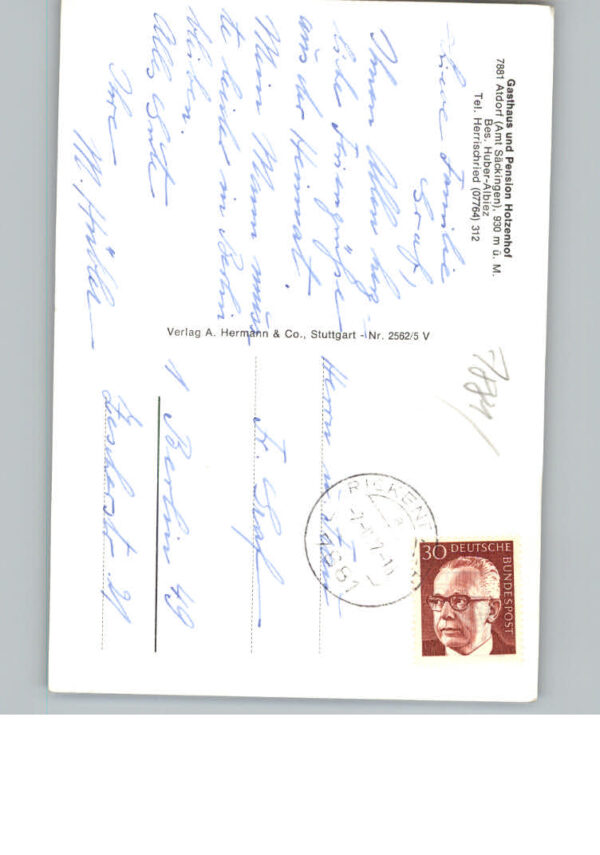 Gasthaus und Pension Hotzenhof
7881 Atdorf (Amt Säckingen), 930 m ü. M.
Bes. Huber-Albiez
Tel. Herrischried (07764) 312
Liebe Familie
Graf,
Ihnen Allen herz-
liche Feriengrüße
aus der Heimat.
Mein Mann muss-
te leider in Berlin
bleiben.
Alles Gute
Ihre
M. Hübler
Verlag A. Hermann & Co., Stuttgart - Nr. 2562/5 V
7884/
Herrn u. Frau
F. Graf
1 Berlin 49
Zescherstr. 21
RICKENB
7881
30 DEUTSCHE
BUNDESPOST